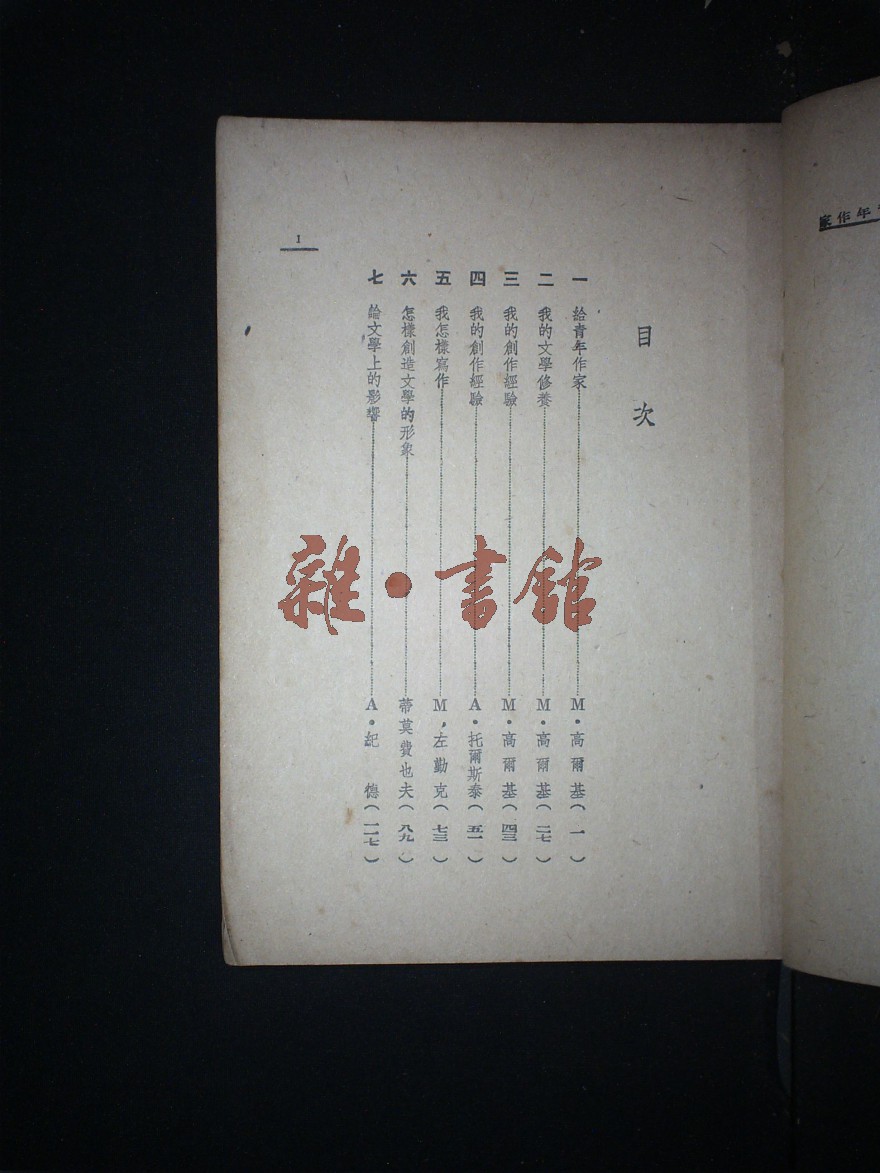 年作家
目次
一 給青年作家 M·高爾基(一)
二 我的文學修養 M·高爾基(二七)
三 我的創作經驗 M·高爾基(四三)
四 我的創作經驗 A·托爾斯泰(五一)
五 我怎樣寫作 M,左勤克(七三)
六 怎樣創造文學的形象 蒂莫費也夫(八九)
七 論文學上的影響 A·紀德(一一七)
I
雜·書館